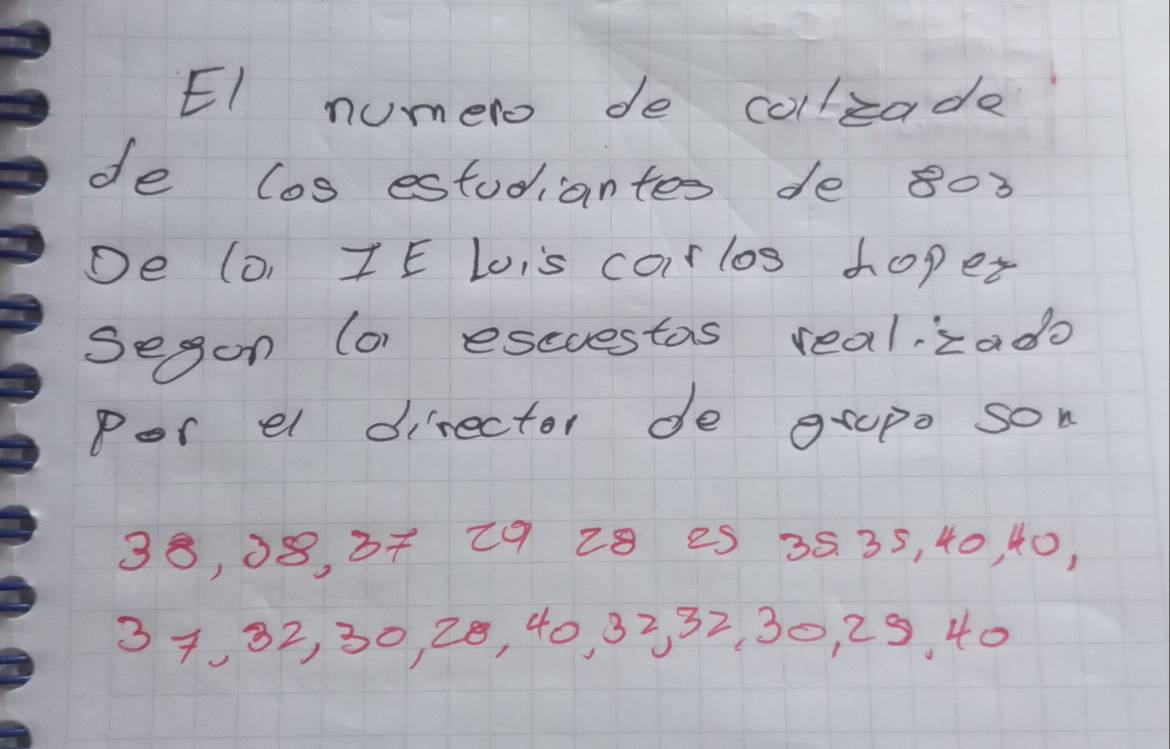 El numero de calzade
de los estudiantes de 803
De la IE Luis carlos Lopez
Segun la escuestas realizado
Por el director de grupo son
38, 38, 37 29 28 29 35. 35, 40, 40,
37, 32, 30, 28, 40, 32, 32, 30, 29, 40